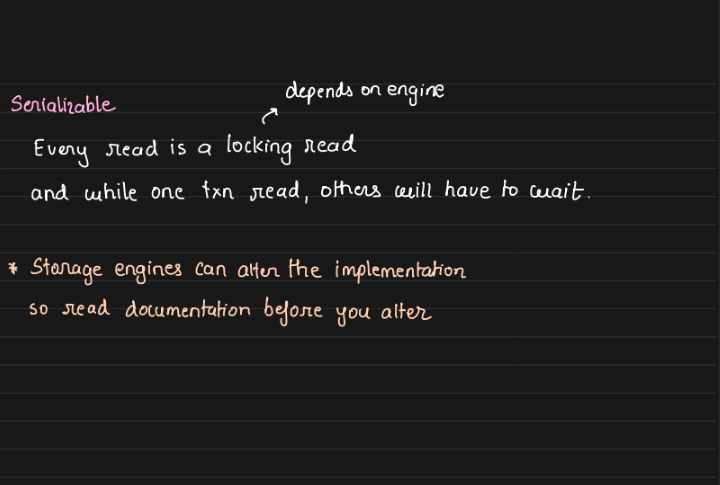 depends on engine
Serializable
Every read is a locking read
and while one txn read, others will have to wait.
* Storage engines can alter the implementation
so read documentation before you alter